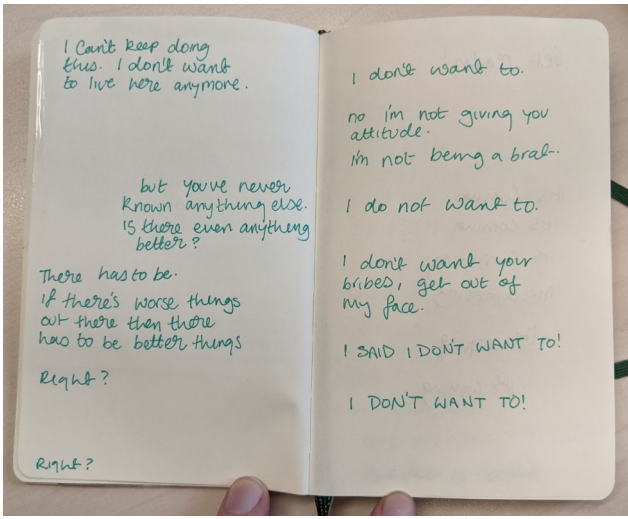 I Can't keep doing
this. I don't want
to live here anymore.
but you've never
known anything else.
Is there even anything
better?
There has to be.
if there's worse things
out there then there
has to be better things
Right?
Right?
I don't want to.
no i'm not giving you
attitude.
i'm not being a brat.
I do not want to.
I don't want your
bribes, get out of
my face.
I SAID I DON'T WANT TO!
I DON'T WANT TO!